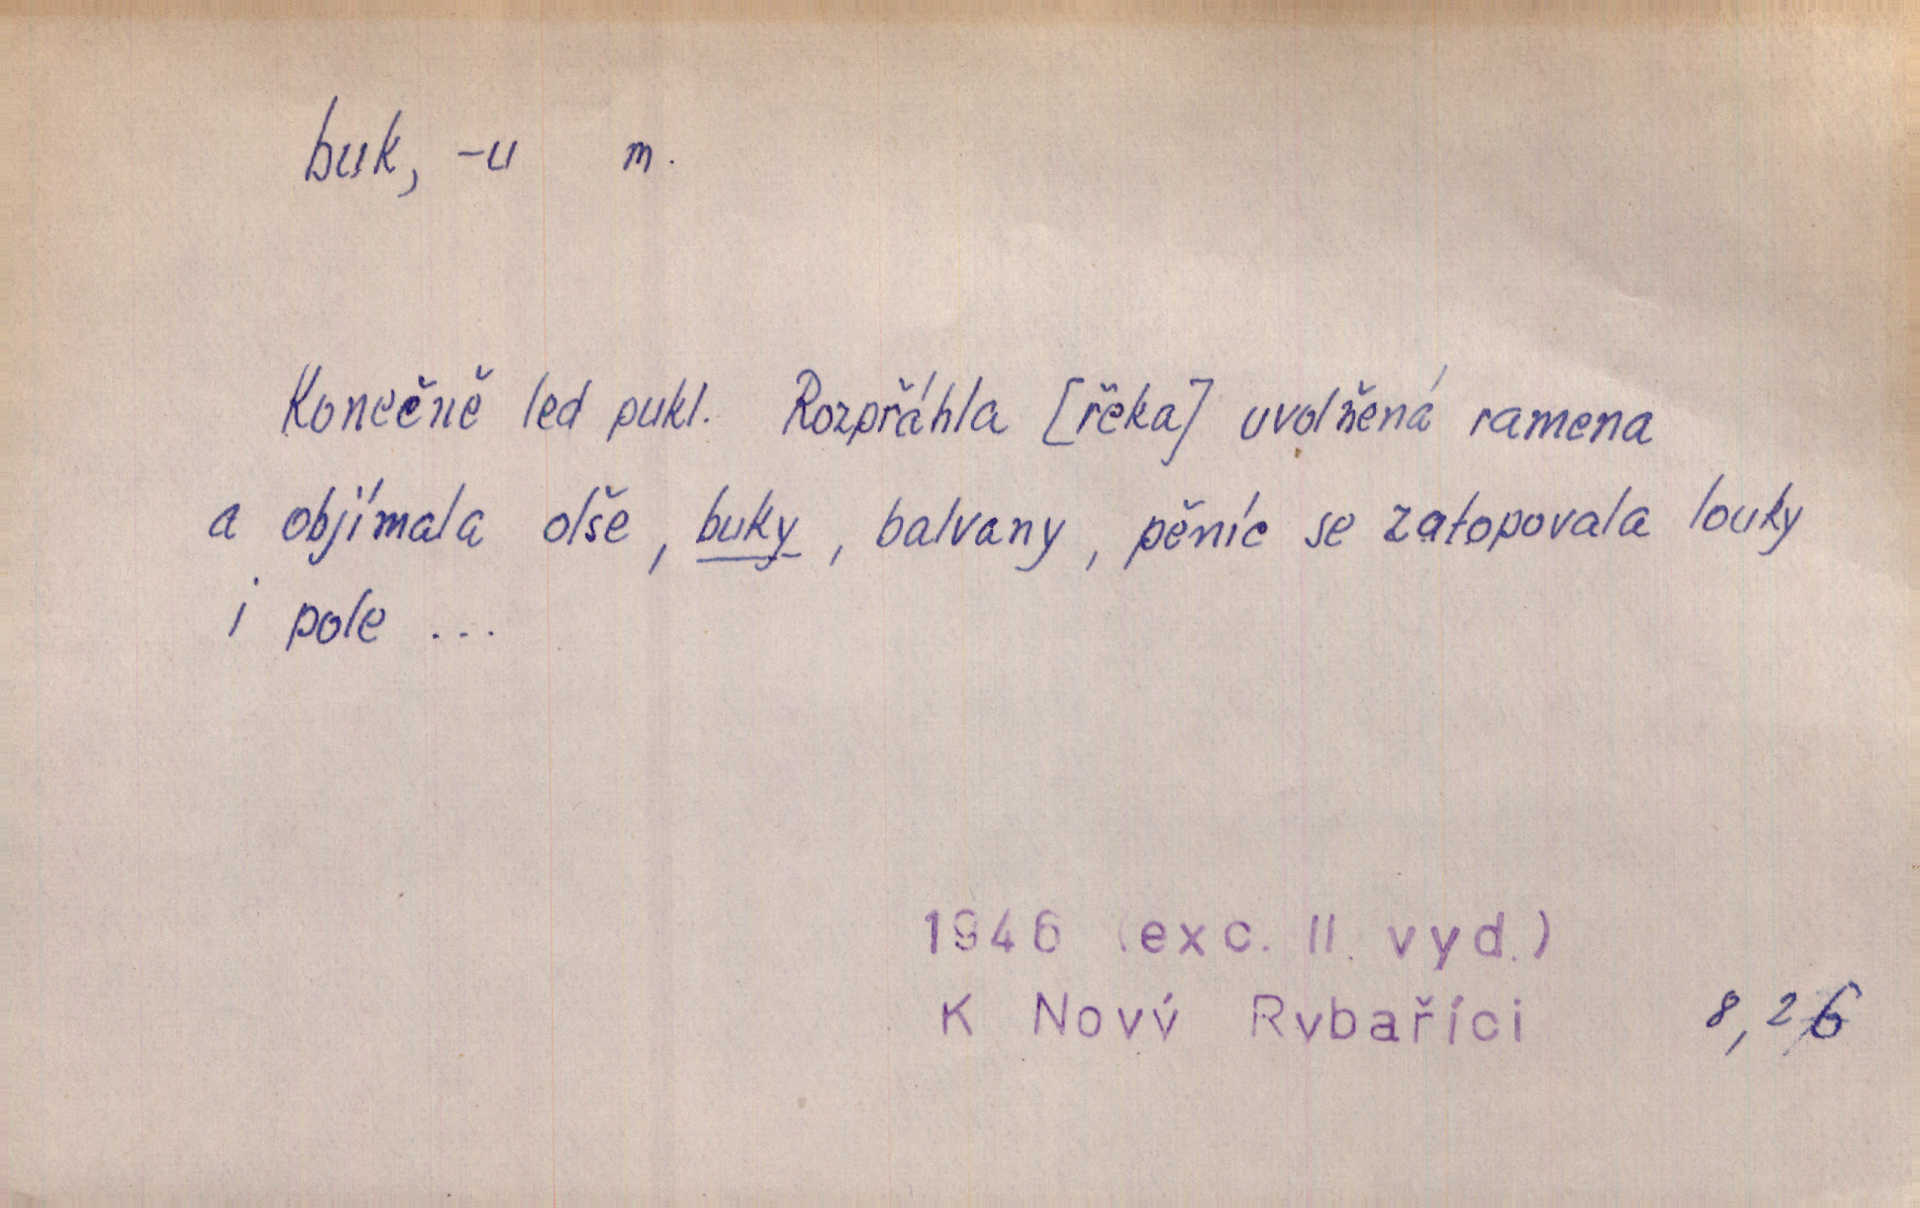 buk, -u m.
Konečně led pukl. Rozpřáhla [řeka] uvolněná ramena
a objímala olše, buky, balvany, pěníc se zatopovala louky
i pole ...
1946 (exc. II. vyd.)
K Nový Rybaříci 8, 26